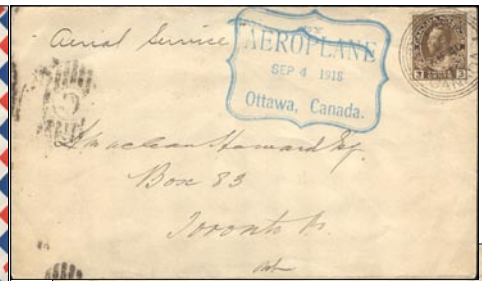 Aerial Service
BY
AEROPLANE
SEP 4 1918
Ottawa, Canada.
Howard Esq.
Box 83
Toronto
Ont